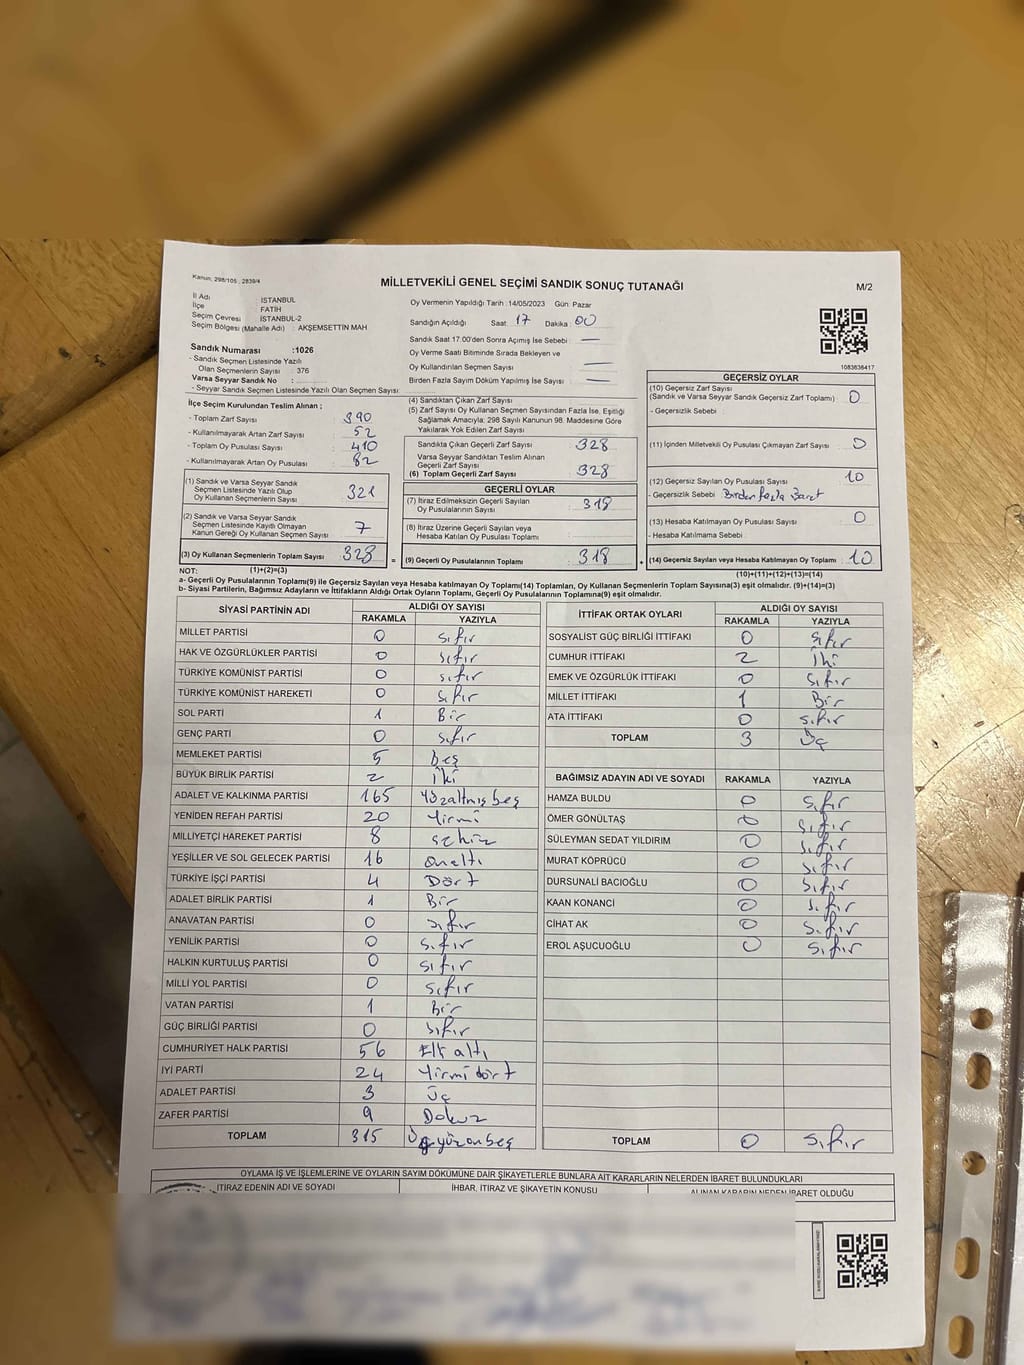 Kanun, 298/105 , 2839/4
MİLLETVEKİLİ GENEL SEÇİMİ SANDIK SONUÇ TUTANAĞI
M/2
İl Adı : İSTANBUL
İlçe : FATİH
Seçim Çevresi : İSTANBUL-2
Seçim Bölgesi (Mahalle Adı) : AKŞEMSETTİN MAH
Oy Vermenin Yapıldığı Tarih : 14/05/2023 Gün: Pazar
Sandığın Açıldığı Saat: 17 Dakika : 00
Sandık Saat 17.00'den Sonra Açımış İse Sebebi : —
Oy Verme Saati Bitiminde Sırada Bekleyen ve
Oy Kullandırılan Seçmen Sayısı : —
Birden Fazla Sayım Döküm Yapılmış İse Sayısı : —
1083636417
Sandık Numarası :1026
- Sandık Seçmen Listesinde Yazılı
Olan Seçmenlerin Sayısı : 376
Varsa Seyyar Sandık No :
- Seyyar Sandık Seçmen Listesinde Yazılı Olan Seçmen Sayısı:
İlçe Seçim Kurulundan Teslim Alınan ;
- Toplam Zarf Sayısı : 390
- Kullanılmayarak Artan Zarf Sayısı : 52
- Toplam Oy Pusulası Sayısı : 410
- Kullanılmayarak Artan Oy Pusulası : 82
(1) Sandık ve Varsa Seyyar Sandık
Seçmen Listesinde Yazılı Olup
Oy Kullanan Seçmenlerin Sayısı : 321
(2) Sandık ve Varsa Seyyar Sandık
Seçmen Listesinde Kayıtlı Olmayan
Kanun Gereği Oy Kullanan Seçmen Sayısı : 7
(3) Oy Kullanan Seçmenlerin Toplam Sayısı : 328 =
(4) Sandıktan Çıkan Zarf Sayısı
(5) Zarf Sayısı Oy Kullanan Seçmen Sayısından Fazla İse, Eşitliği
Sağlamak Amacıyla; 298 Sayılı Kanunun 98. Maddesine Göre
Yakılarak Yok Edilen Zarf Sayısı
Sandıkta Çıkan Geçerli Zarf Sayısı : 328
Varsa Seyyar Sandıktan Teslim Alınan
Geçerli Zarf Sayısı
(6) Toplam Geçerli Zarf Sayısı : 328
GEÇERLİ OYLAR
(7) İtiraz Edilmeksizin Geçerli Sayılan
Oy Pusulalarının Sayısı : 318
(8) İtiraz Üzerine Geçerli Sayılan veya
Hesaba Katılan Oy Pusulası Toplamı :
(9) Geçerli Oy Pusulalarının Toplamı : 318 +
GEÇERSİZ OYLAR
(10) Geçersiz Zarf Sayısı
(Sandık ve Varsa Seyyar Sandık Geçersiz Zarf Toplamı) : 0
- Geçersizlik Sebebi :
(11) İçinden Milletvekili Oy Pusulası Çıkmayan Zarf Sayısı : 0
(12) Geçersiz Sayılan Oy Pusulası Sayısı : 10
- Geçersizlik Sebebi : Birden fazla Basıt
(13) Hesaba Katılmayan Oy Pusulası Sayısı : 0
- Hesaba Katılmama Sebebi :
(14) Geçersiz Sayılan veya Hesaba Katılmayan Oy Toplamı : 10
NOT: (1)+(2)=(3) (10)+(11)+(12)+(13)=(14)
a- Geçerli Oy Pusulalarının Toplamı(9) ile Geçersiz Sayılan veya Hesaba katılmayan Oy Toplamı(14) Toplamları, Oy Kullanan Seçmenlerin Toplam Sayısına(3) eşit olmalıdır. (9)+(14)=(3)
b- Siyasi Partilerin, Bağımsız Adayların ve İttifakların Aldığı Ortak Oyların Toplamı, Geçerli Oy Pusulalarının Toplamına(9) eşit olmalıdır.
SİYASİ PARTİNİN ADI ALDIĞI OY SAYISI
RAKAMLA YAZIYLA
MİLLET PARTİSİ 0 sıfır
HAK VE ÖZGÜRLÜKLER PARTİSİ 0 sıfır
TÜRKİYE KOMÜNİST PARTİSİ 0 sıfır
TÜRKİYE KOMÜNİST HAREKETİ 0 sıfır
SOL PARTİ 1 Bir
GENÇ PARTİ 0 sıfır
MEMLEKET PARTİSİ 5 beş
BÜYÜK BİRLİK PARTİSİ 2 İki
ADALET VE KALKINMA PARTİSİ 165 Yüzaltmışbeş
YENİDEN REFAH PARTİSİ 20 Yirmi
MİLLİYETÇİ HAREKET PARTİSİ 8 sekiz
YEŞİLLER VE SOL GELECEK PARTİSİ 16 onaltı
TÜRKİYE İŞÇİ PARTİSİ 4 Dört
ADALET BİRLİK PARTİSİ 1 Bir
ANAVATAN PARTİSİ 0 sıfır
YENİLİK PARTİSİ 0 sıfır
HALKIN KURTULUŞ PARTİSİ 0 sıfır
MİLLİ YOL PARTİSİ 0 sıfır
VATAN PARTİSİ 1 Bir
GÜÇ BİRLİĞİ PARTİSİ 0 sıfır
CUMHURİYET HALK PARTİSİ 56 Elli altı
İYİ PARTİ 24 Yirmi dört
ADALET PARTİSİ 3 Üç
ZAFER PARTİSİ 9 Dokuz
TOPLAM 315 Üçyüzonbeş
İTTİFAK ORTAK OYLARI ALDIĞI OY SAYISI
RAKAMLA YAZIYLA
SOSYALİST GÜÇ BİRLİĞİ İTTİFAKI 0 sıfır
CUMHUR İTTİFAKI 2 İki
EMEK VE ÖZGÜRLÜK İTTİFAKI 0 sıfır
MİLLET İTTİFAKI 1 Bir
ATA İTTİFAKI 0 sıfır
TOPLAM 3 Üç
BAĞIMSIZ ADAYIN ADI VE SOYADI RAKAMLA YAZIYLA
HAMZA BULDU 0 sıfır
ÖMER GÖNÜLTAŞ 0 sıfır
SÜLEYMAN SEDAT YILDIRIM 0 sıfır
MURAT KÖPRÜCÜ 0 sıfır
DURSUNALİ BACIOĞLU 0 sıfır
KAAN KONANCİ 0 sıfır
CİHAT AK 0 sıfır
EROL AŞUCUOĞLU 0 sıfır
TOPLAM 0 sıfır
OYLAMA İŞ VE İŞLEMLERİNE VE OYLARIN SAYIM DÖKÜMÜNE DAİR ŞİKAYETLERLE BUNLARA AİT KARARLARIN NELERDEN İBARET BULUNDUKLARI
İTİRAZ EDENİN ADI VE SOYADI İHBAR, İTİRAZ VE ŞİKAYETİN KONUSU ALINAN KARARIN NEDEN İBARET OLDUĞU